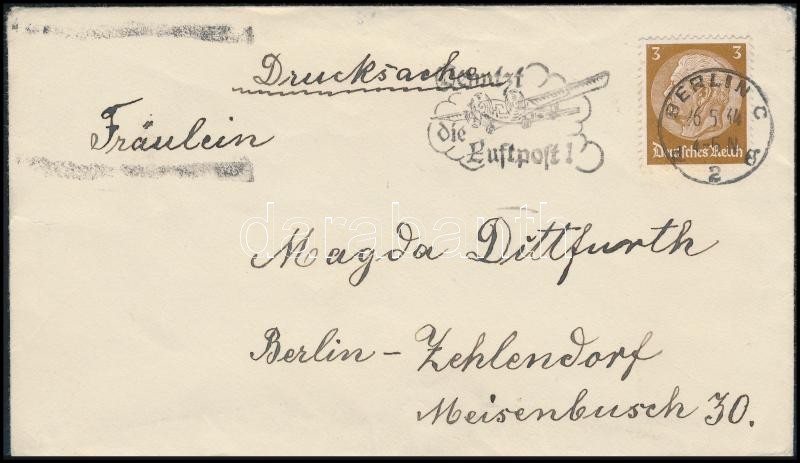 Drucksache
Benutzt
die
Luftpost!
3 3
Deutsches Reich
BERLIN C
2
Fräulein
Magda Dittfurth
Berlin - Zehlendorf
Meisenbusch 30.
darabanth